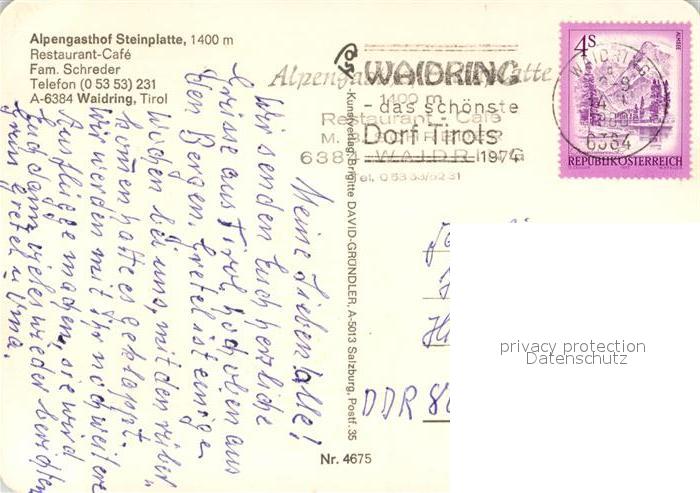 Alpengasthof Steinplatte, 1400 m
Restaurant-Café
Fam. Schreder
Telefon (0 53 53) 231
A-6384 Waidring, Tirol
WAIDRING
- das schönste
Dorf Tirols
1974
Alpengasthof Steinplatte
1400 m
Restaurant - Café
6384 WAIDRING
Tel. 05353/5231
WAIDRING
6384
4S
ALMSEE
REPUBLIK ÖSTERREICH
Meine Lieben alle!
Wir senden Euch herzliche
Grüsse aus Tirol, hoch oben aus
den Bergen. Gretel ist einige
Wochen bei uns, mit den rüber
kommen hat es geklappt.
Wir werden mit ihr noch weitere
Ausflüge machen, sie wird
Euch dann vieles wieder berichten
Gretel u. Oma.
Kunstverlag Brigitte DAVID-GRÜNDLER, A-5013 Salzburg, Postf. 35
DDR 8
Nr. 4675
privacy protection
Datenschutz